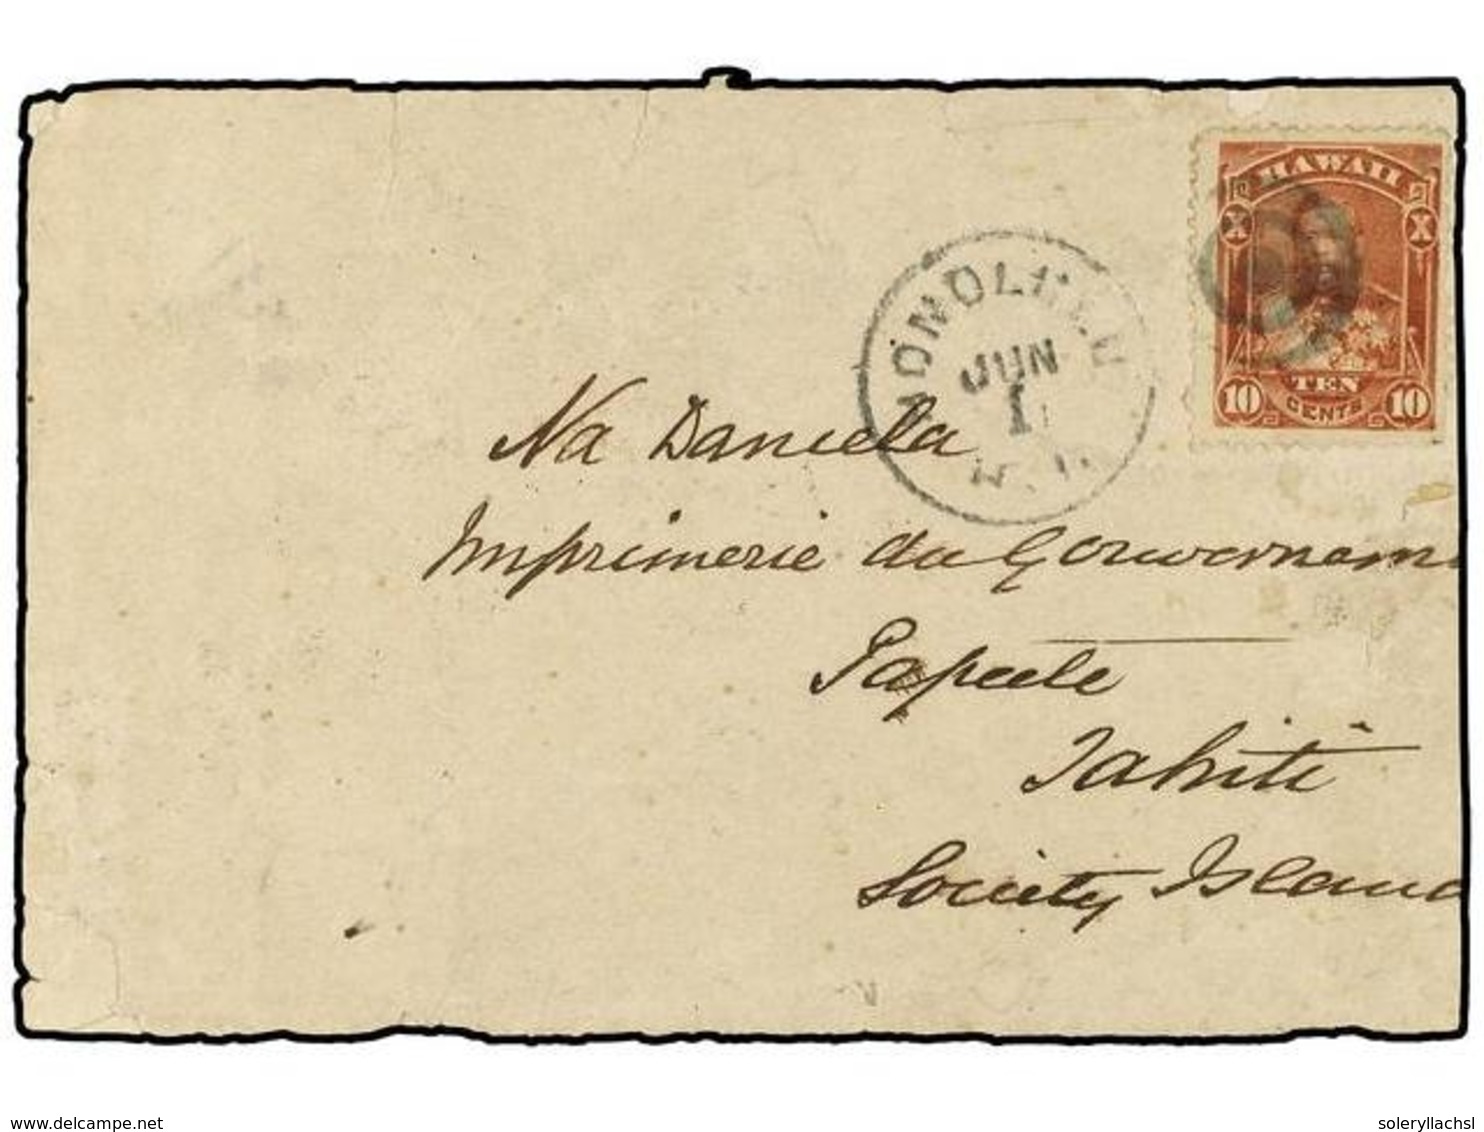 HAWAII
X X
10 TEN CENTS 10
HONOLULU
JUN
1
H.I.
Na Daniela
Imprimerie du Gouvernem
Papeete
Tahiti
Society Island
delcampe.net
soleryllachsl